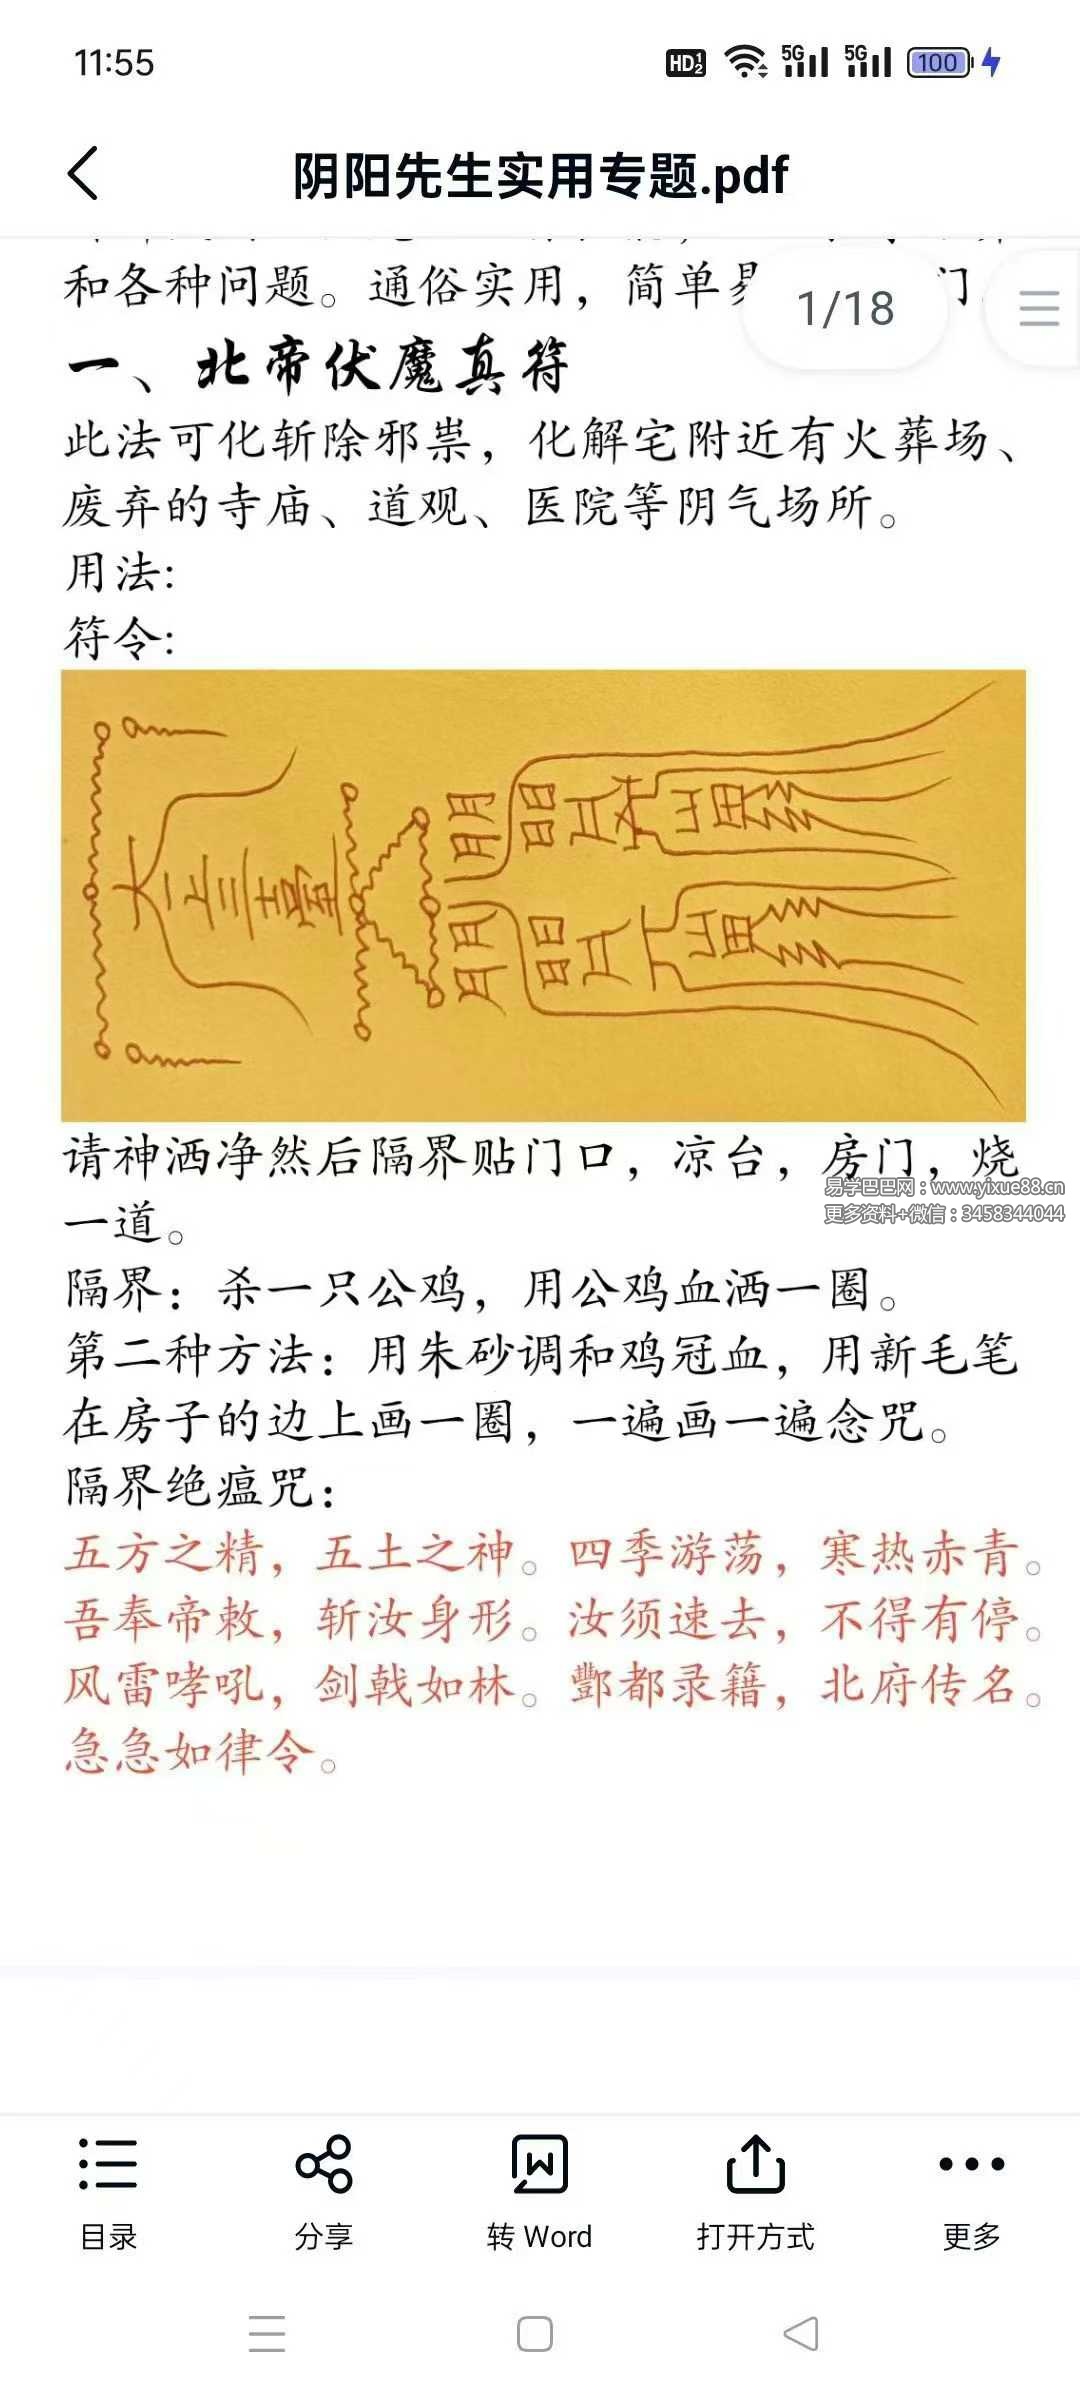 11:55
HD 1 2 5G 5G 100
阴阳先生实用专题.pdf
和各种问题。通俗实用，简单
门
1/18
一、北帝伏魔真符
此法可化斩除邪祟，化解宅附近有火葬场、
废弃的寺庙、道观、医院等阴气场所。
用法:
符令:
请神洒净然后隔界贴门口，凉台，房门，烧
易学巴巴网：www.yixue88.cn
更多资料+微信：3458344044
一道。
隔界：杀一只公鸡，用公鸡血洒一圈。
第二种方法：用朱砂调和鸡冠血，用新毛笔
在房子的边上画一圈，一遍画一遍念咒。
隔界绝瘟咒：
五方之精，五土之神。四季游荡，寒热赤青。
吾奉帝敕，斩汝身形。汝须速去，不得有停。
风雷哮吼，剑戟如林。酆都录籍，北府传名。
急急如律令。
目录
分享
转 Word
打开方式
更多